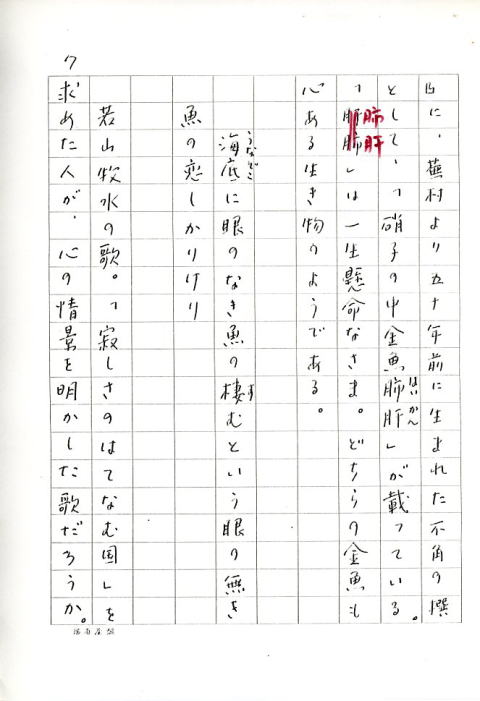 7
に、蕪村より五十年前に生まれた不角の撰
として、「硝子の中金魚肺肝」が載っている。
はいかん
「肝肺」は一生懸命なさま。どちらの金魚も
肺肝
心ある生き物のようである。
海底に眼のなき魚の棲むという眼の無き
うなぞこ
す
魚の恋しかりけり
若山牧水の歌。「寂しさのはてなむ国」を
求めた人が、心の情景を明かした歌だろうか。